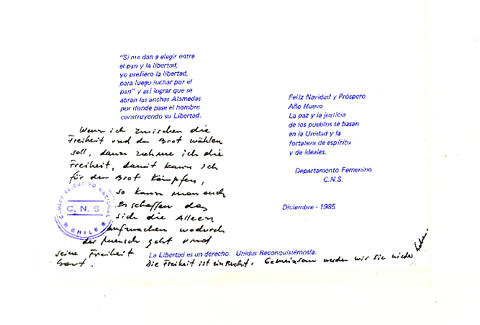 "Si me dan a elegir entre
el pan y la libertad,
yo prefiero la libertad,
para luego luchar por el
pan" y así lograr que se
abran las anchas Alamedas
por donde pase el hombre
construyendo su Libertad.
Wenn ich zwischen die
Freiheit und den Brot wählen
soll, dann nehme ich die
Freiheit, damit kann ich
für den Brot kämpfen,
so kann man auch
erschaffen das
sich die Alleen
aufmachen wodurch
der Mensch geht und
seine Freiheit
baut.
COMITE EJECUTIVO NACIONAL
C.N.S
CHILE
Feliz Navidad y Próspero
Año Nuevo
La paz y la justicia
de los pueblos se basan
en la Unidad y la
fortaleza de espíritu
y de ideales.
Departamento Femenino
C.N.S.
Diciembre - 1985
La Libertad es un derecho. Unidos Reconquistémosla.
Die Freiheit ist ein Recht. Gemeinsam werden wir sie wieder